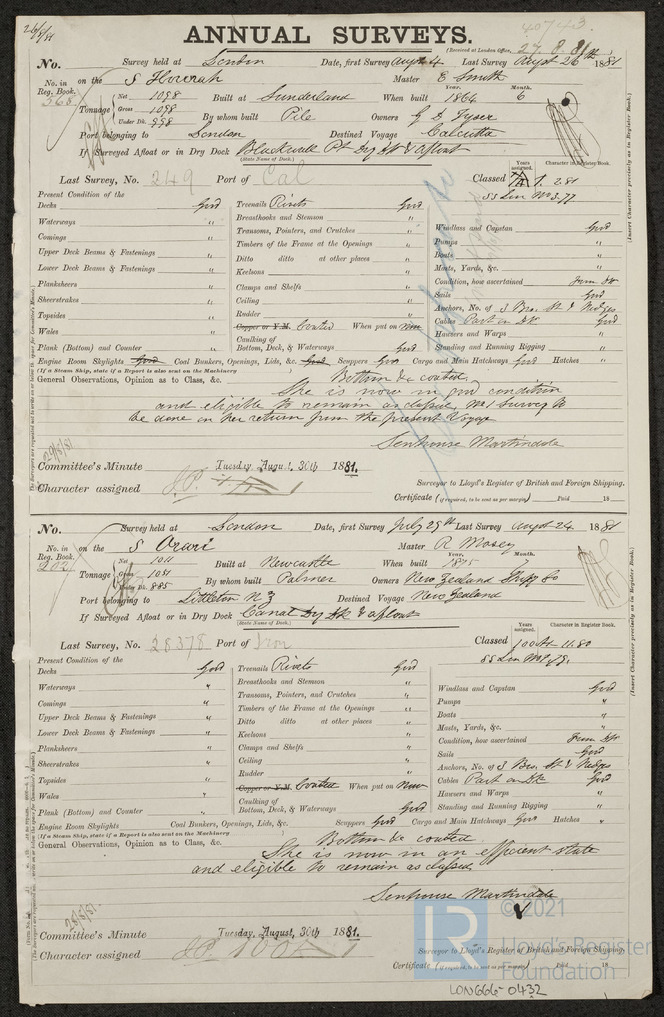 26/8/81
40743
ANNUAL SURVEYS.
(Received at London Office, 27. 8. 81
No. Survey held at London Date, first Survey Augst 4 Last Survey Augst 26th 1881
No. in Reg. Book. 568 on the S Howrah Master E Smith
Tonnage Net 1098 Gross 1098 Under Dk. 998 Built at Sunderland When built Year. 1864 Month. 6
By whom built Pile Owners G D Tyser
Port belonging to London Destined Voyage Calcutta
If Surveyed Afloat or in Dry Dock Blackwall Pt Dry Dk & afloat
(State Name of Dock.)
Last Survey, No. 249 Port of Cal Classed Years assigned. Character in Register Book.
1. 2 81
SS Lon No 3. 77
Present Condition of the
Decks Good Treenails Rivets Good
Waterways " Breasthooks and Stemson " Windlass and Capstan Good
Comings " Transoms, Pointers, and Crutches " Pumps "
Upper Deck Beams & Fastenings " Timbers of the Frame at the Openings " Boats "
Lower Deck Beams & Fastenings " Ditto ditto at other places " Masts, Yards, &c. "
Planksheers " Keelsons " Condition, how ascertained from dk
Sheerstrakes " Clamps and Shelfs " Sails Good
Topsides " Ceiling " Anchors, No. of 3 Brs. St & Kedges
Wales " Rudder " Cables Part on Dk Good
Copper or Y.M. Coated When put on Now Hawsers and Warps "
Plank (Bottom) and Counter " Caulking of Bottom, Deck, & Waterways Good Standing and Running Rigging "
Engine Room Skylights Good Coal Bunkers, Openings, Lids, &c. Good Scuppers Good Cargo and Main Hatchways Good Hatches "
(If a Steam Ship, state if a Report is also sent on the Machinery
General Observations, Opinion as to Class, &c. Bottom &c coated.
She is now in good condition
and eligible to remain as classed, No 1 Survey to
be done on her return from the present Voyage
Senhouse Martindale
29/8/81
Committee's Minute Tuesday, August, 30th 1881.
Character assigned
Surveyor to Lloyd's Register of British and Foreign Shipping.
Certificate (if required, to be sent as per margin) Paid 18
(Insert Character precisely as in Register Book.)
No. Survey held at London Date, first Survey July 29th Last Survey Augst 24 1881
No. in Reg. Book. 202 on the S Orari Master R Mosey
Tonnage Net 1011 Gross 1051 Under Dk. 885 Built at Newcastle When built Year. 1875 Month. 7
By whom built Palmer Owners New Zealand Shipp Co
Port belonging to Littleton N Z Destined Voyage New Zealand
If Surveyed Afloat or in Dry Dock Canal Dry Dk & afloat
(State Name of Dock.)
Last Survey, No. 28378 Port of Iron Classed Years assigned. Character in Register Book.
100 A1 11.80
SS Lon No 1. 79.
Present Condition of the
Decks Good Treenails Rivets Good
Waterways " Breasthooks and Stemson " Windlass and Capstan Good
Comings " Transoms, Pointers, and Crutches " Pumps "
Upper Deck Beams & Fastenings " Timbers of the Frame at the Openings " Boats "
Lower Deck Beams & Fastenings " Ditto ditto at other places " Masts, Yards, &c. "
Planksheers " Keelsons " Condition, how ascertained from dk
Sheerstrakes " Clamps and Shelfs " Sails Good
Topsides " Ceiling " Anchors, No. of 3 Brs. St & Kedges
Wales " Rudder " Cables Part on Dk Good
Copper or Y.M. Coated When put on Now Hawsers and Warps "
Plank (Bottom) and Counter " Caulking of Bottom, Deck, & Waterways Good Standing and Running Rigging "
Engine Room Skylights Coal Bunkers, Openings, Lids, &c. Scuppers Good Cargo and Main Hatchways Good Hatches "
(If a Steam Ship, state if a Report is also sent on the Machinery
General Observations, Opinion as to Class, &c. Bottom &c coated
She is now in an efficient state
and eligible to remain as classed
Senhouse Martindale
Committee's Minute Tuesday, August, 30th 1881.
Character assigned
Surveyor to Lloyd's Register of British and Foreign Shipping.
Certificate (if required, to be sent as per margin) Paid 18
(Insert Character precisely as in Register Book.)
© 2021
LR Lloyd's Register
Foundation
LON666-0432